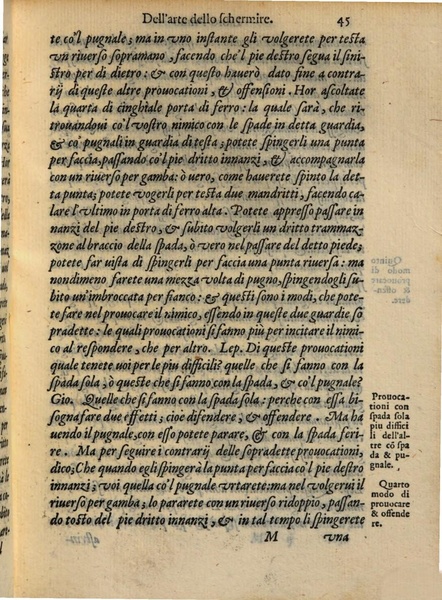 Dell'arte dello schermire. 45
te co'l pugnale; ma in vno instante gli volgerete per testa
vn riuerso sopramano, facendo che'l pie destro segua il sini-
stro per di dietro: & con questo hauerò dato fine a contra-
rij di queste altre prouocationi, & offensioni. Hor ascoltate
la quarta di cinghiale porta di ferro: la quale sarà, che ri-
trouandoui co'l vostro nimico con le spade in detta guardia,
& co' pugnali in guardia di testa; potete spingerli vna punta
per faccia, passando co'l pie dritto innanzi, & accompagnarla
con un riuerso per gamba: ò uero, come hauerete spinto la det
ta punta; potete vogerli per testa due mandritti, facendo ca-
lare l'vltimo in porta di ferro alta. Potete appresso passare in
nanzi del pie destro, & subito volgerli un dritto trammaz-
zone al braccio della spada, ò vero nel passare del detto piede,
potete far uista di spingerli per faccia una punta riuersa: ma
nondimeno farete una mezza volta di pugno, spingendogli su
bito un'imbroccata per fianco: & questi sono i modi, che pote-
te fare nel prouocare il nimico, essendo in queste due guardie so
pradette: le quali prouocationi si fanno piu per incitare il nimi-
co al respondere, che per altro. Lep. Di queste prouocationi
quale tenete uoi per le piu difficili? quelle che si fanno con la
spada sola, ò queste che si fanno con la spada, & co'l pugnale?
Gio. Quelle che si fanno con la spada sola: perche con essa bi-
sogna fare due effetti; cioe difendere, & offendere. Ma ha
uendo il pugnale, con esso potete parare, & con la spada feri-
re. Ma per seguire i contrarij delle sopradette prouocationi,
dico; Che quando egli spingerà la punta per faccia co'l pie destro
innanzi; voi quella co'l pugnale vrtarete: ma nel volgerui il
riuerso per gamba; lo pararete con un riuerso ridoppio, passan-
do tosto del pie dritto innanzi, & in tal tempo li spingerete
M vna
Prouoca-
tioni con
spada sola
piu diffici
li dell'al-
tre cō spa
da & pu-
gnale.
Quarto
modo di
prouocare
& offende
re.